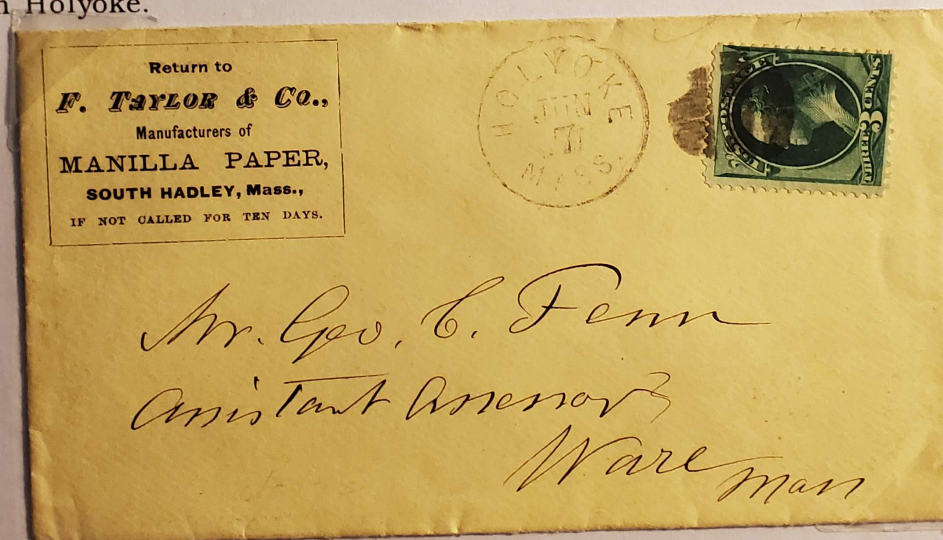 Holyoke.
Return to
F. TAYLOR & Co.,
Manufacturers of
MANILLA PAPER,
SOUTH HADLEY, Mass.,
IF NOT CALLED FOR TEN DAYS.
HOLYOKE
JUN
MASS.
U.S. POSTAGE
THREE CENTS
3
Mr. Geo. C. Fenn
Assistant Assessor
Ware
Mass